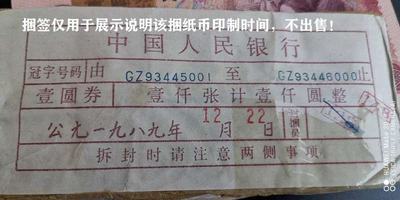 捆签仅用于展示说明该捆纸币印制时间,不出售!
中国人民银行
冠字号码 由 GZ93445001 至 GZ93446000 止
壹圆券 壹仟张计壹仟圆整
公元一九八九年 12 月 22 日 封捆员
拆封时请注意两侧事项